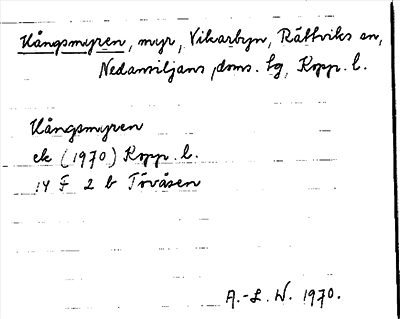 Kångsmyren, myr, Vikarbyn, Rättviks sn,
Nedansiljans doms. tg, Kopp. l.
Kångsmyren
ek (1970) Kopp. l.
14 F 2 b Tövåsen
A.-L. W. 1970.